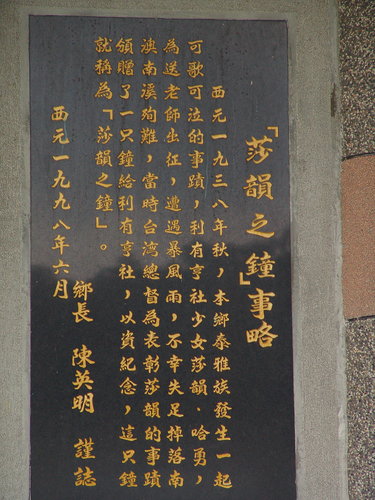 「莎韻之鐘」事略
西元一九三八年秋，本鄉泰雅族發生一起
可歌可泣的事蹟，利有亨社少女莎韻．哈勇，
為送老師出征，遭遇暴風雨，不幸失足掉落南
澳南溪殉難，當時台湾總督為表彰莎韻的事蹟
頒贈了一只鐘給利有亨社，以資紀念，這只鐘
就稱為「莎韻之鐘」。
鄉長 陳英明 謹誌
西元一九九八年六月